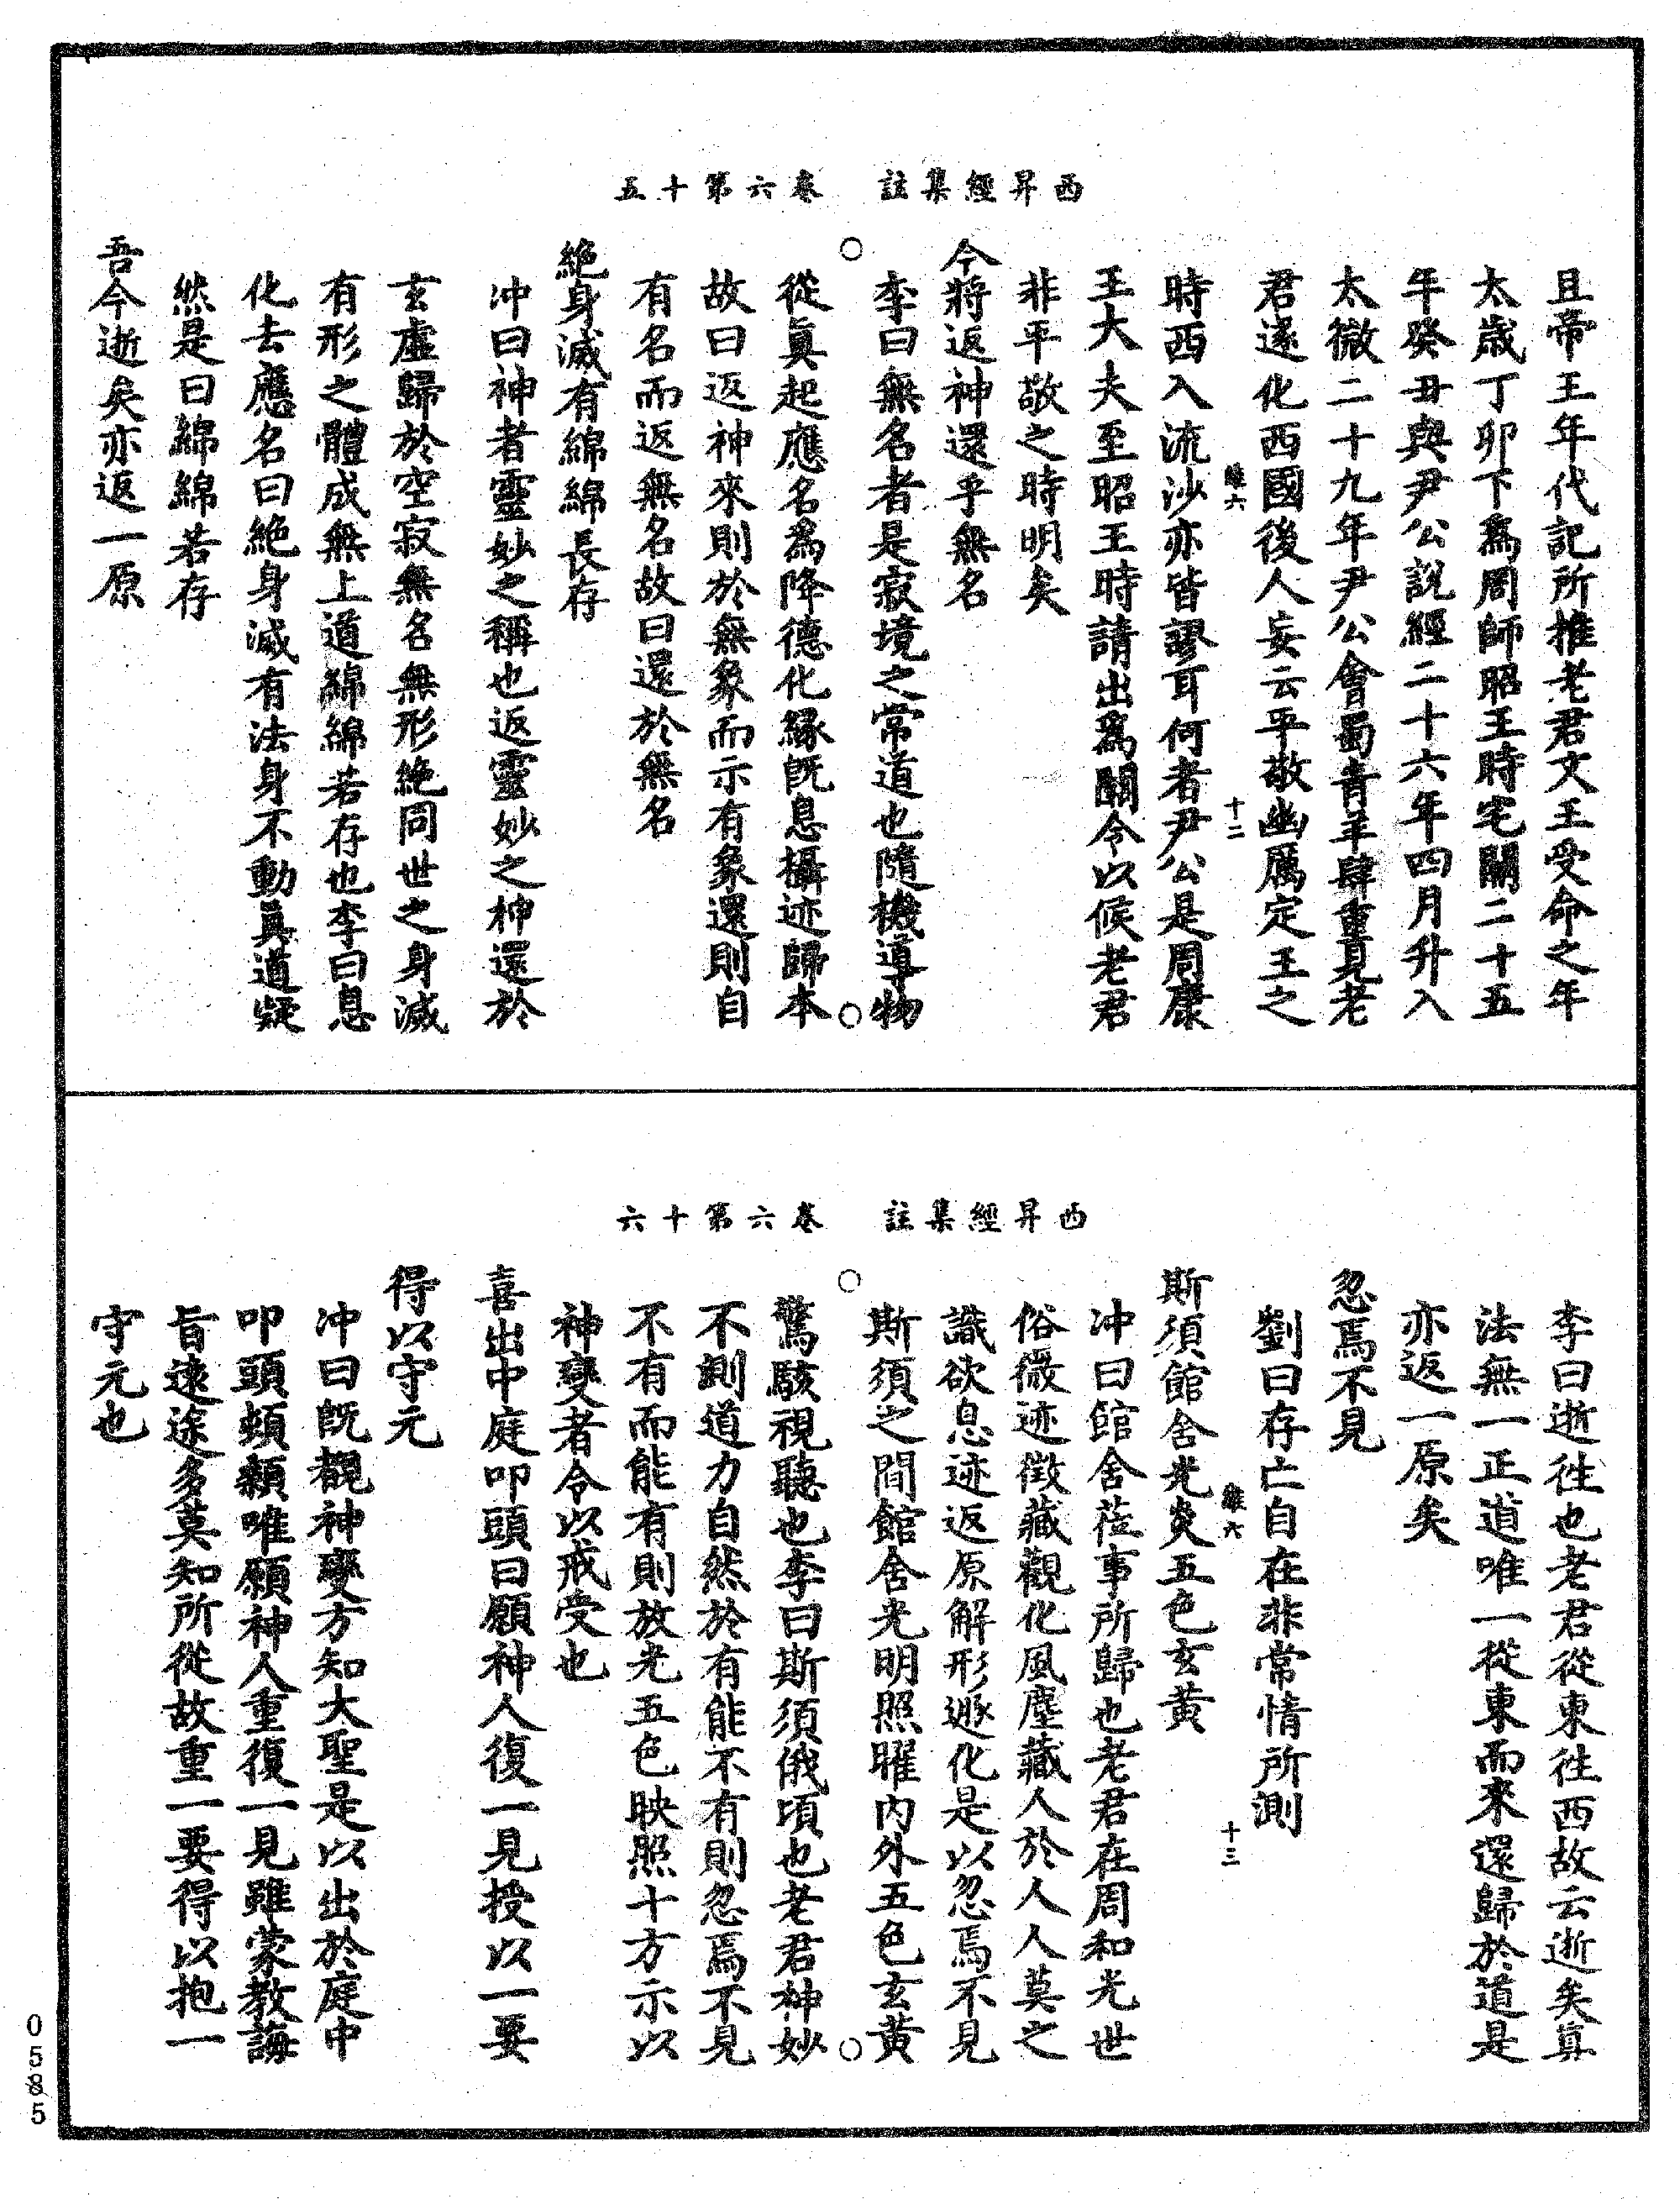 西昇經集註　卷六第十五
且帝王年代記所推老君文王受命之年
太歲丁卯下爲周師昭王時宅關二十五
年癸丑與尹公説經二十六年四月升入
太微二十九年尹公會蜀青羊肆重見老
君遂化西國後人妄云平敬幽厲定王之
維六　十二
時西入流沙亦皆謬耳何者尹公是周康
王大夫至昭王時請出爲關令以候老君
非平敬之時明矣
今將返神還乎無名
李曰無名者是寂境之常道也隨機導物
從眞起應名爲降德化緣旣息攝迹歸本
故曰返神來則於無象而示有象還則自
有名而返無名故曰還於無名
絕身滅有綿綿長存
冲曰神者靈妙之稱也返靈妙之神還於
玄虛歸於空寂無名無形絕同世之身滅
有形之體成無上道綿綿若存也李曰息
化去應名曰絕身滅有法身不動眞道凝
然是曰綿綿若存
吾今逝矣亦返一原
西昇經集註　卷六第十六
李曰逝往也老君從東往西故云逝矣眞
法無一正道唯一從東而來還歸於道是
亦返一原矣
忽焉不見
劉曰存亡自在非常情所測
維六　十三
斯須館舍光炎五色玄黄
冲曰館舍莅事所歸也老君在周和光世
俗微迹徵藏觀化風塵藏人於人人莫之
識欲息迹返原解形遯化是以忽焉不見
斯須之間館舍光明照曜内外五色玄黄
驚駭視聽也李曰斯須俄頃也老君神妙
不測道力自然於有能不有則忽焉不見
不有而能有則放光五色映照十方示以
神變者令以戒受也
喜出中庭叩頭曰願神人復一見授以一要
得以守元
冲曰旣覩神變方知大聖是以出於庭中
叩頭頰顙唯願神人重復一見雖蒙教誨
旨遠途多莫知所從故重一要得以抱一
守元也
0585